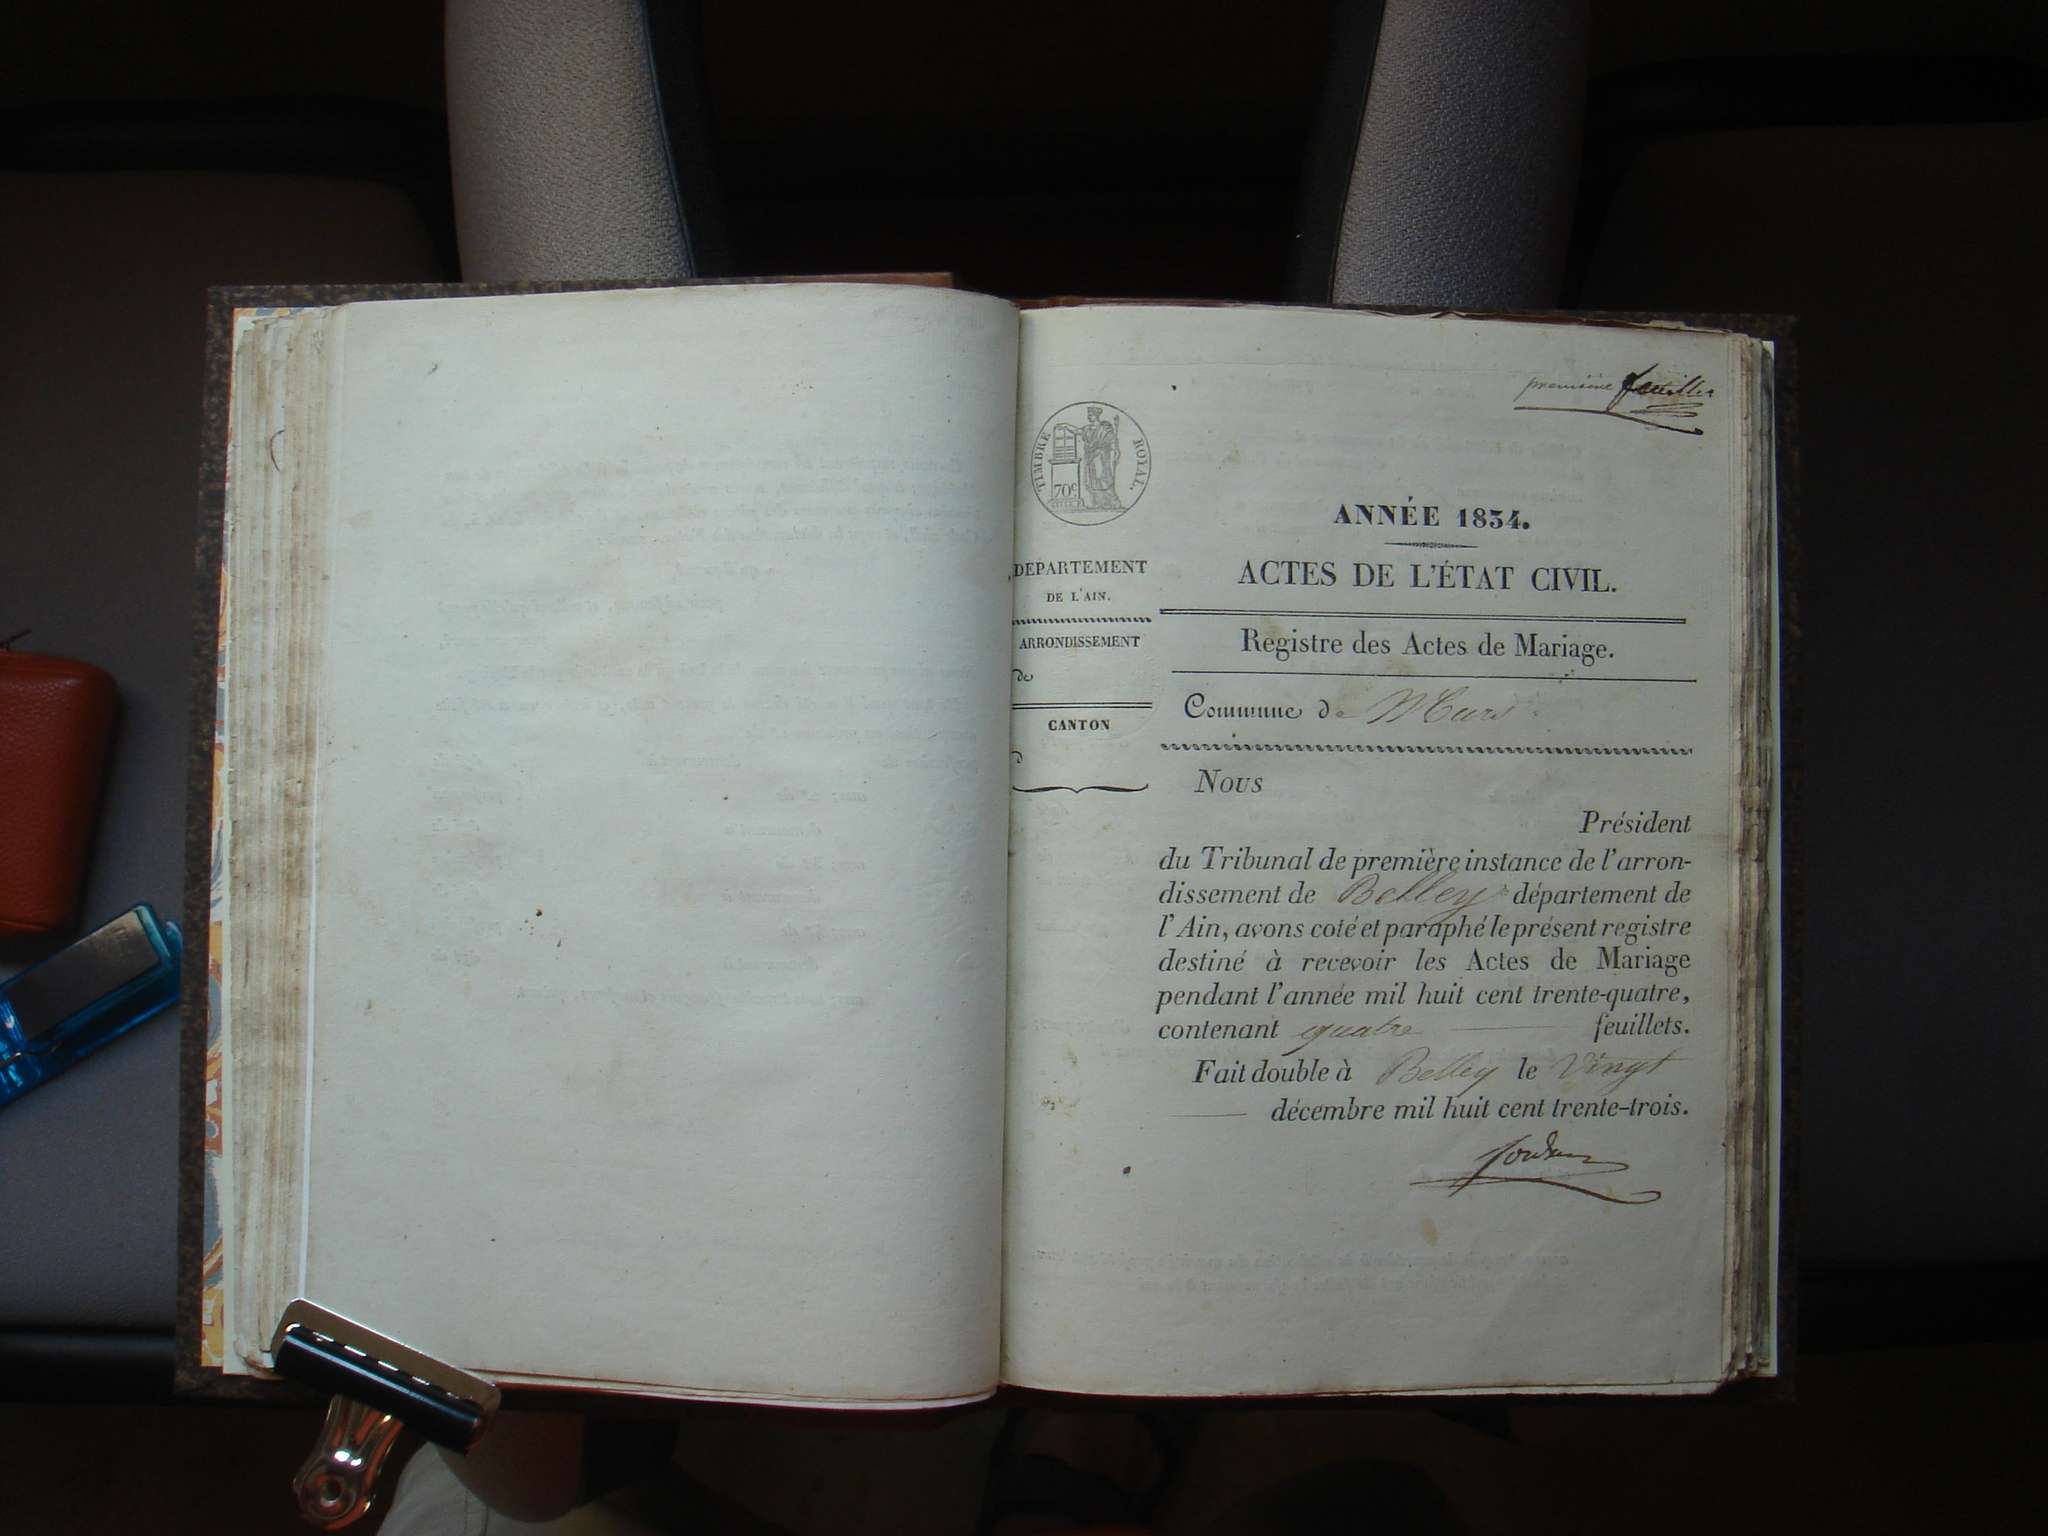 première feuillet
TIMBRE ROYAL.
70 c
ANNÉE 1834.
ACTES DE L'ÉTAT CIVIL.
DEPARTEMENT
DE L'AIN.
ARRONDISSEMENT
de
CANTON
d
Registre des Actes de Mariage.
Commune de Murs
Nous
Président
du Tribunal de première instance de l'arron-
dissement de Belley département de
l'Ain, avons coté et paraphé le présent registre
destiné à recevoir les Actes de Mariage
pendant l'année mil huit cent trente-quatre,
contenant quatre feuillets.
Fait double à Belley le Vingt
décembre mil huit cent trente-trois.